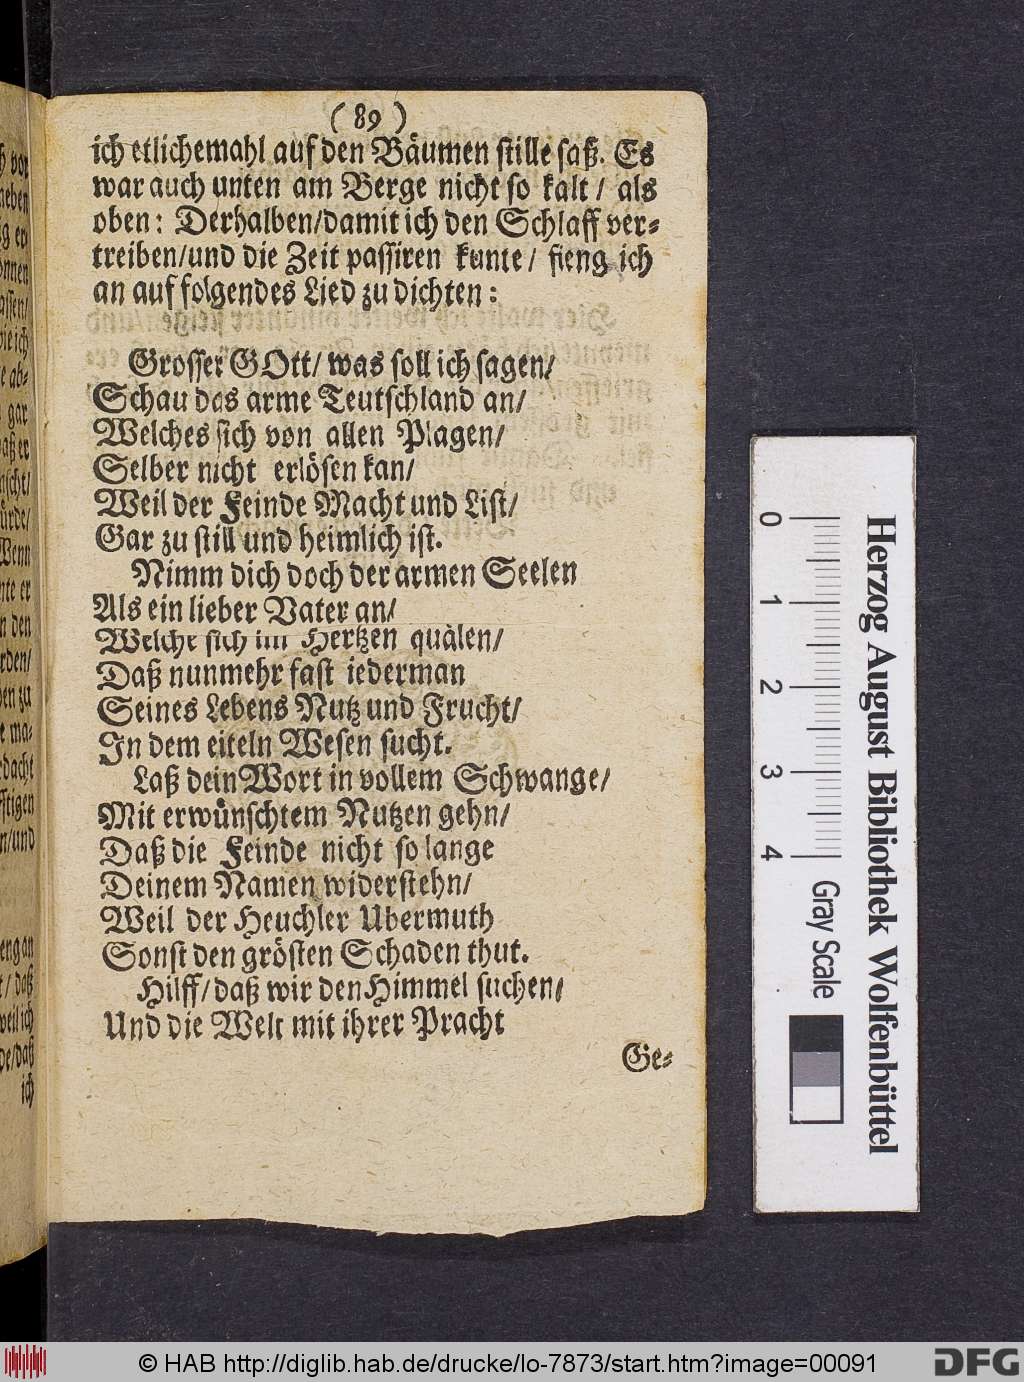 ( 89 )
ich etlichemahl auf den Bäumen stille saß. Es
war auch unten am Berge nicht so kalt / als
oben: Derhalben/damit ich den Schlaff ver-
treiben/und die Zeit passiren kunte/ fieng ich
an auf folgendes Lied zu dichten:
Grosser GOtt/ was soll ich sagen/
Schau das arme Teutschland an/
Welches sich von allen Plagen/
Selber nicht erlösen kan/
Weil der Feinde Macht und List/
Gar zu still und heimlich ist.
Nimm dich doch der armen Seelen
Als ein lieber Vater an/
Welche sich im Hertzen quälen/
Daß nunmehr fast iederman
Seines Lebens Nutz und Frucht/
In dem eiteln Wesen sucht.
Laß dein Wort in vollem Schwange/
Mit erwünschtem Nutzen gehn/
Daß die Feinde nicht so lange
Deinem Namen widerstehn/
Weil der Heuchler Ubermuth
Sonst den grösten Schaden thut.
Hilff/daß wir den Himmel suchen/
Und die Welt mit ihrer Pracht
Ge-
0 1 2 3 4 Gray Scale
Herzog August Bibliothek Wolfenbüttel
© HAB http://diglib.hab.de/drucke/lo-7873/start.htm?image=00091
DFG